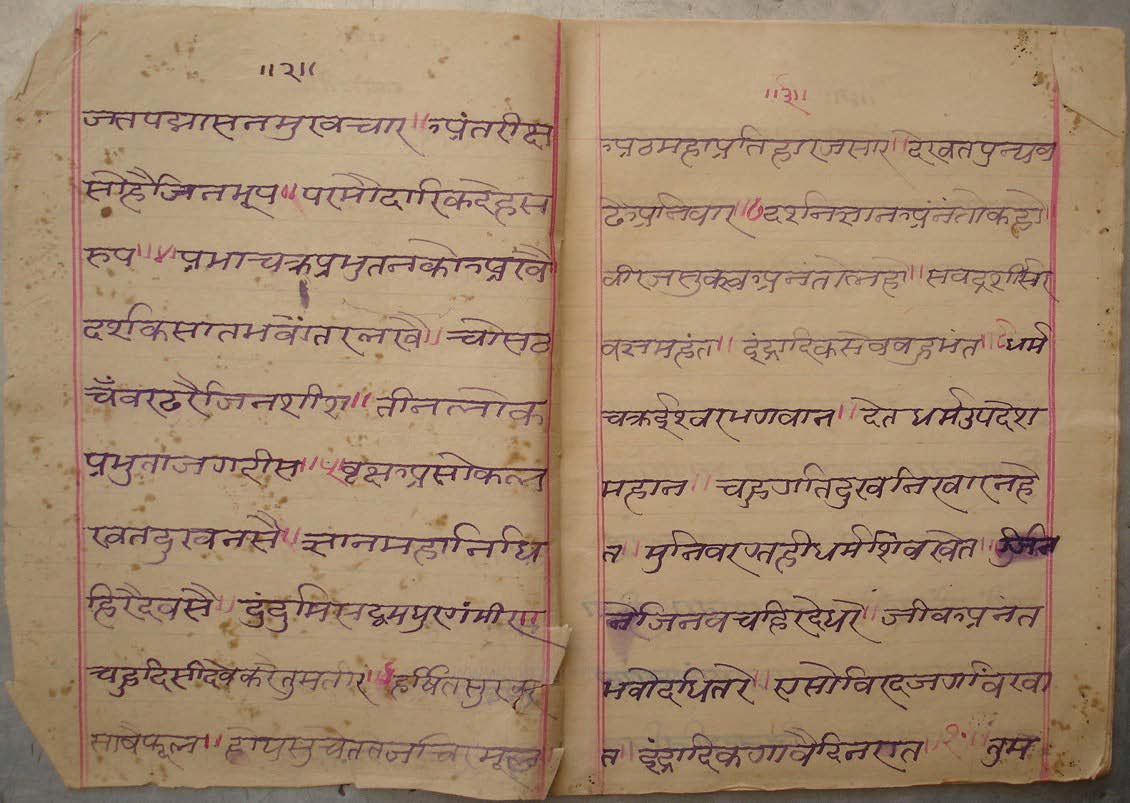 ॥२॥
जतपद्मासनमुखचार॥अंतरीक्ष
सोहैजिनभूप॥परमौदारिकदेहस
रुप॥४॥प्रभाचक्रप्रभुतनकोअखै
दर्शकसातभवांतरलखै॥चोसठ
चँवरढरैजिनशीश॥तीनलोक
प्रभुताजगदीस॥५॥वृक्षअसोकल
खतदुखनसै॥ज्ञानमहानिधि
हिरदैवसै॥दुंदुभिसब्दमधुरगंभीर॥
चहुदिसीदेवकरैतुमतीर॥६॥हर्षितसुर
सावैफूल॥होयसुचेततजचिरभूल
॥३॥
अठमहाप्रतिहारजसार॥देखतपुन्यव
ढेअनिवार॥७॥दर्शनिज्ञानअनंतोकहो॥
वीरजसुक्खअनंतोलहो॥सवदर्शीसर
वज्ञमहंत॥इंद्रादिकसेवबहुमंत॥८॥धर्म
चक्रईश्वरभगवान॥देतधर्मउपदेश
महान॥चहुगतिदुखनिरवारनहे
त॥मुनिवरएतहीधर्मशिवखेत॥९॥जिन
नेजिनवचहिरदेधरे॥जीवअनंत
भवोदधितरे॥एसोविरदजगविखा
त॥इंद्रादिकगावैदिनरात॥१०॥तुम